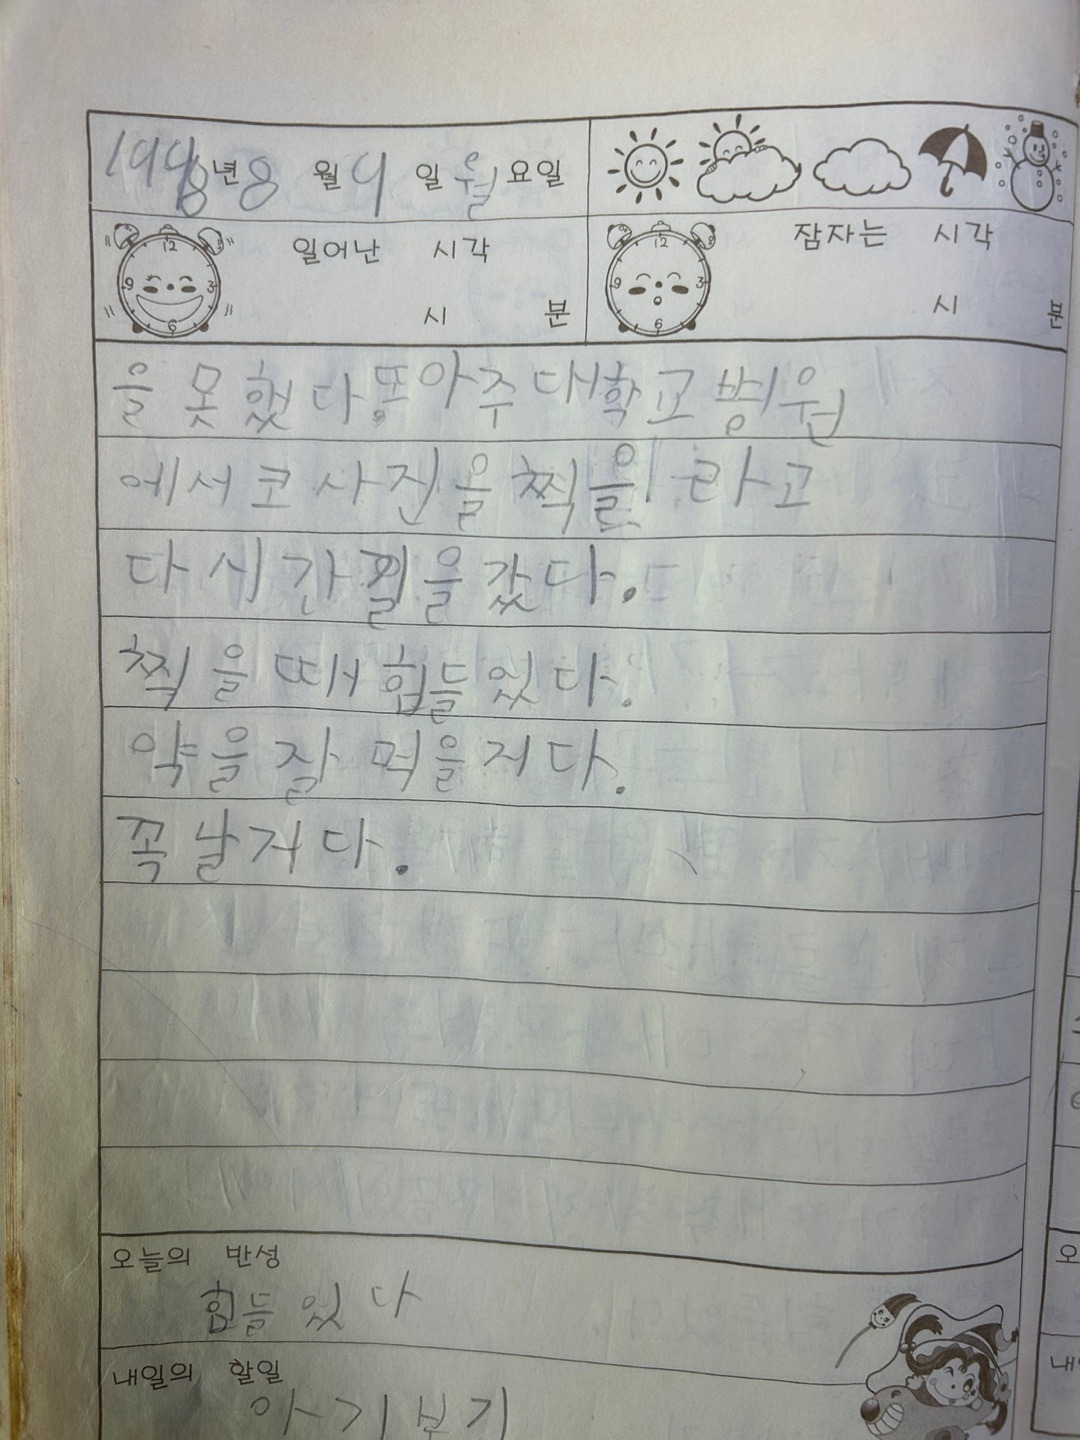 1998년 8 월 9 일 월 요일
일어난 시각 잠자는 시각
시 분 시 분
을 못 했다 또 아주대학교 병원
에서 코 사진을 찍을 라고
다시 간길을 갔다.
찍을 때 힘들었다.
약을 잘 먹을 거다.
꼭 날거다.
오늘의 반성
힘들었다
내일의 할일
아기보기